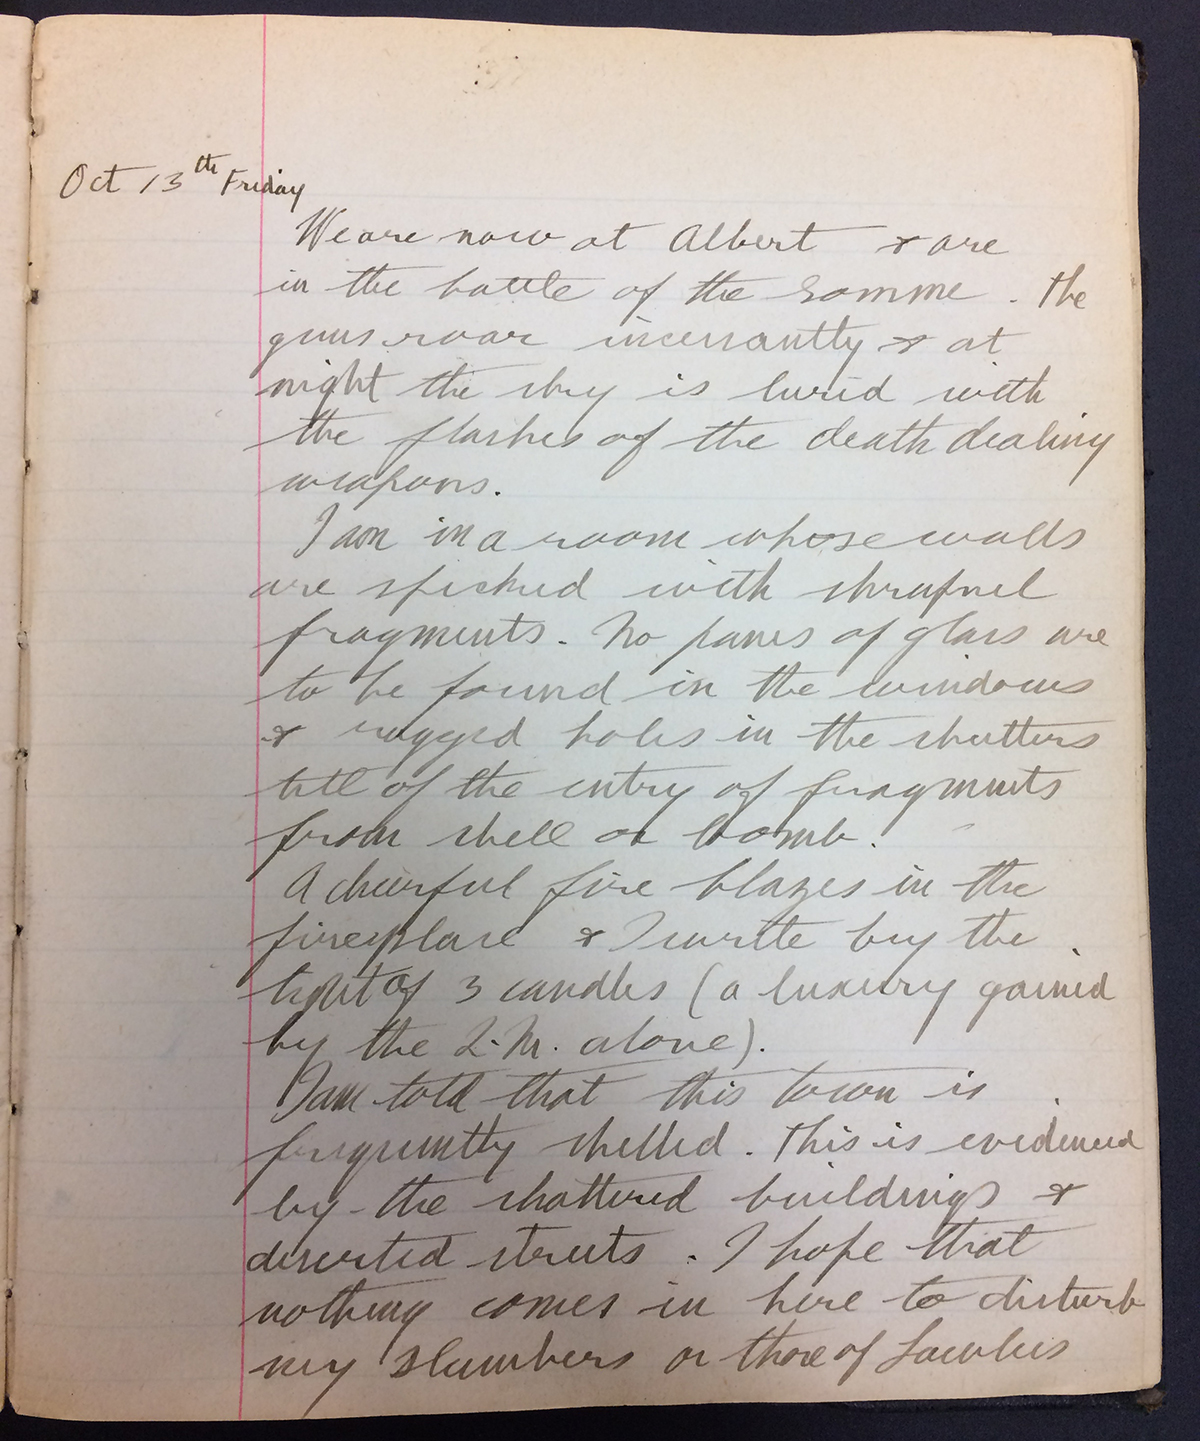 Oct 13th Friday
We are now at Albert & are
in the battle of the Somme. The
guns roar incessantly & at
night the sky is lurid with
the flashes of the death dealing
weapons.
I am in a room whose walls
are specked with shrapnel
fragments. No panes of glass are
to be found in the windows
& ragged holes in the shutters
tell of the entry of fragments
from shell or bomb.
A cheerful fire blazes in the
fireplace & I write by the
light of 3 candles (a luxury gained
by the Q.M. alone).
I am told that this town is
frequently shelled. This is evidenced
by the shattered buildings &
deserted streets. I hope that
nothing comes in here to disturb
my slumbers or those of